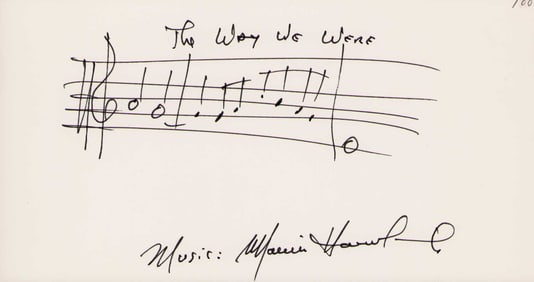 The Way We Were
Music: Marvin Hamlisch